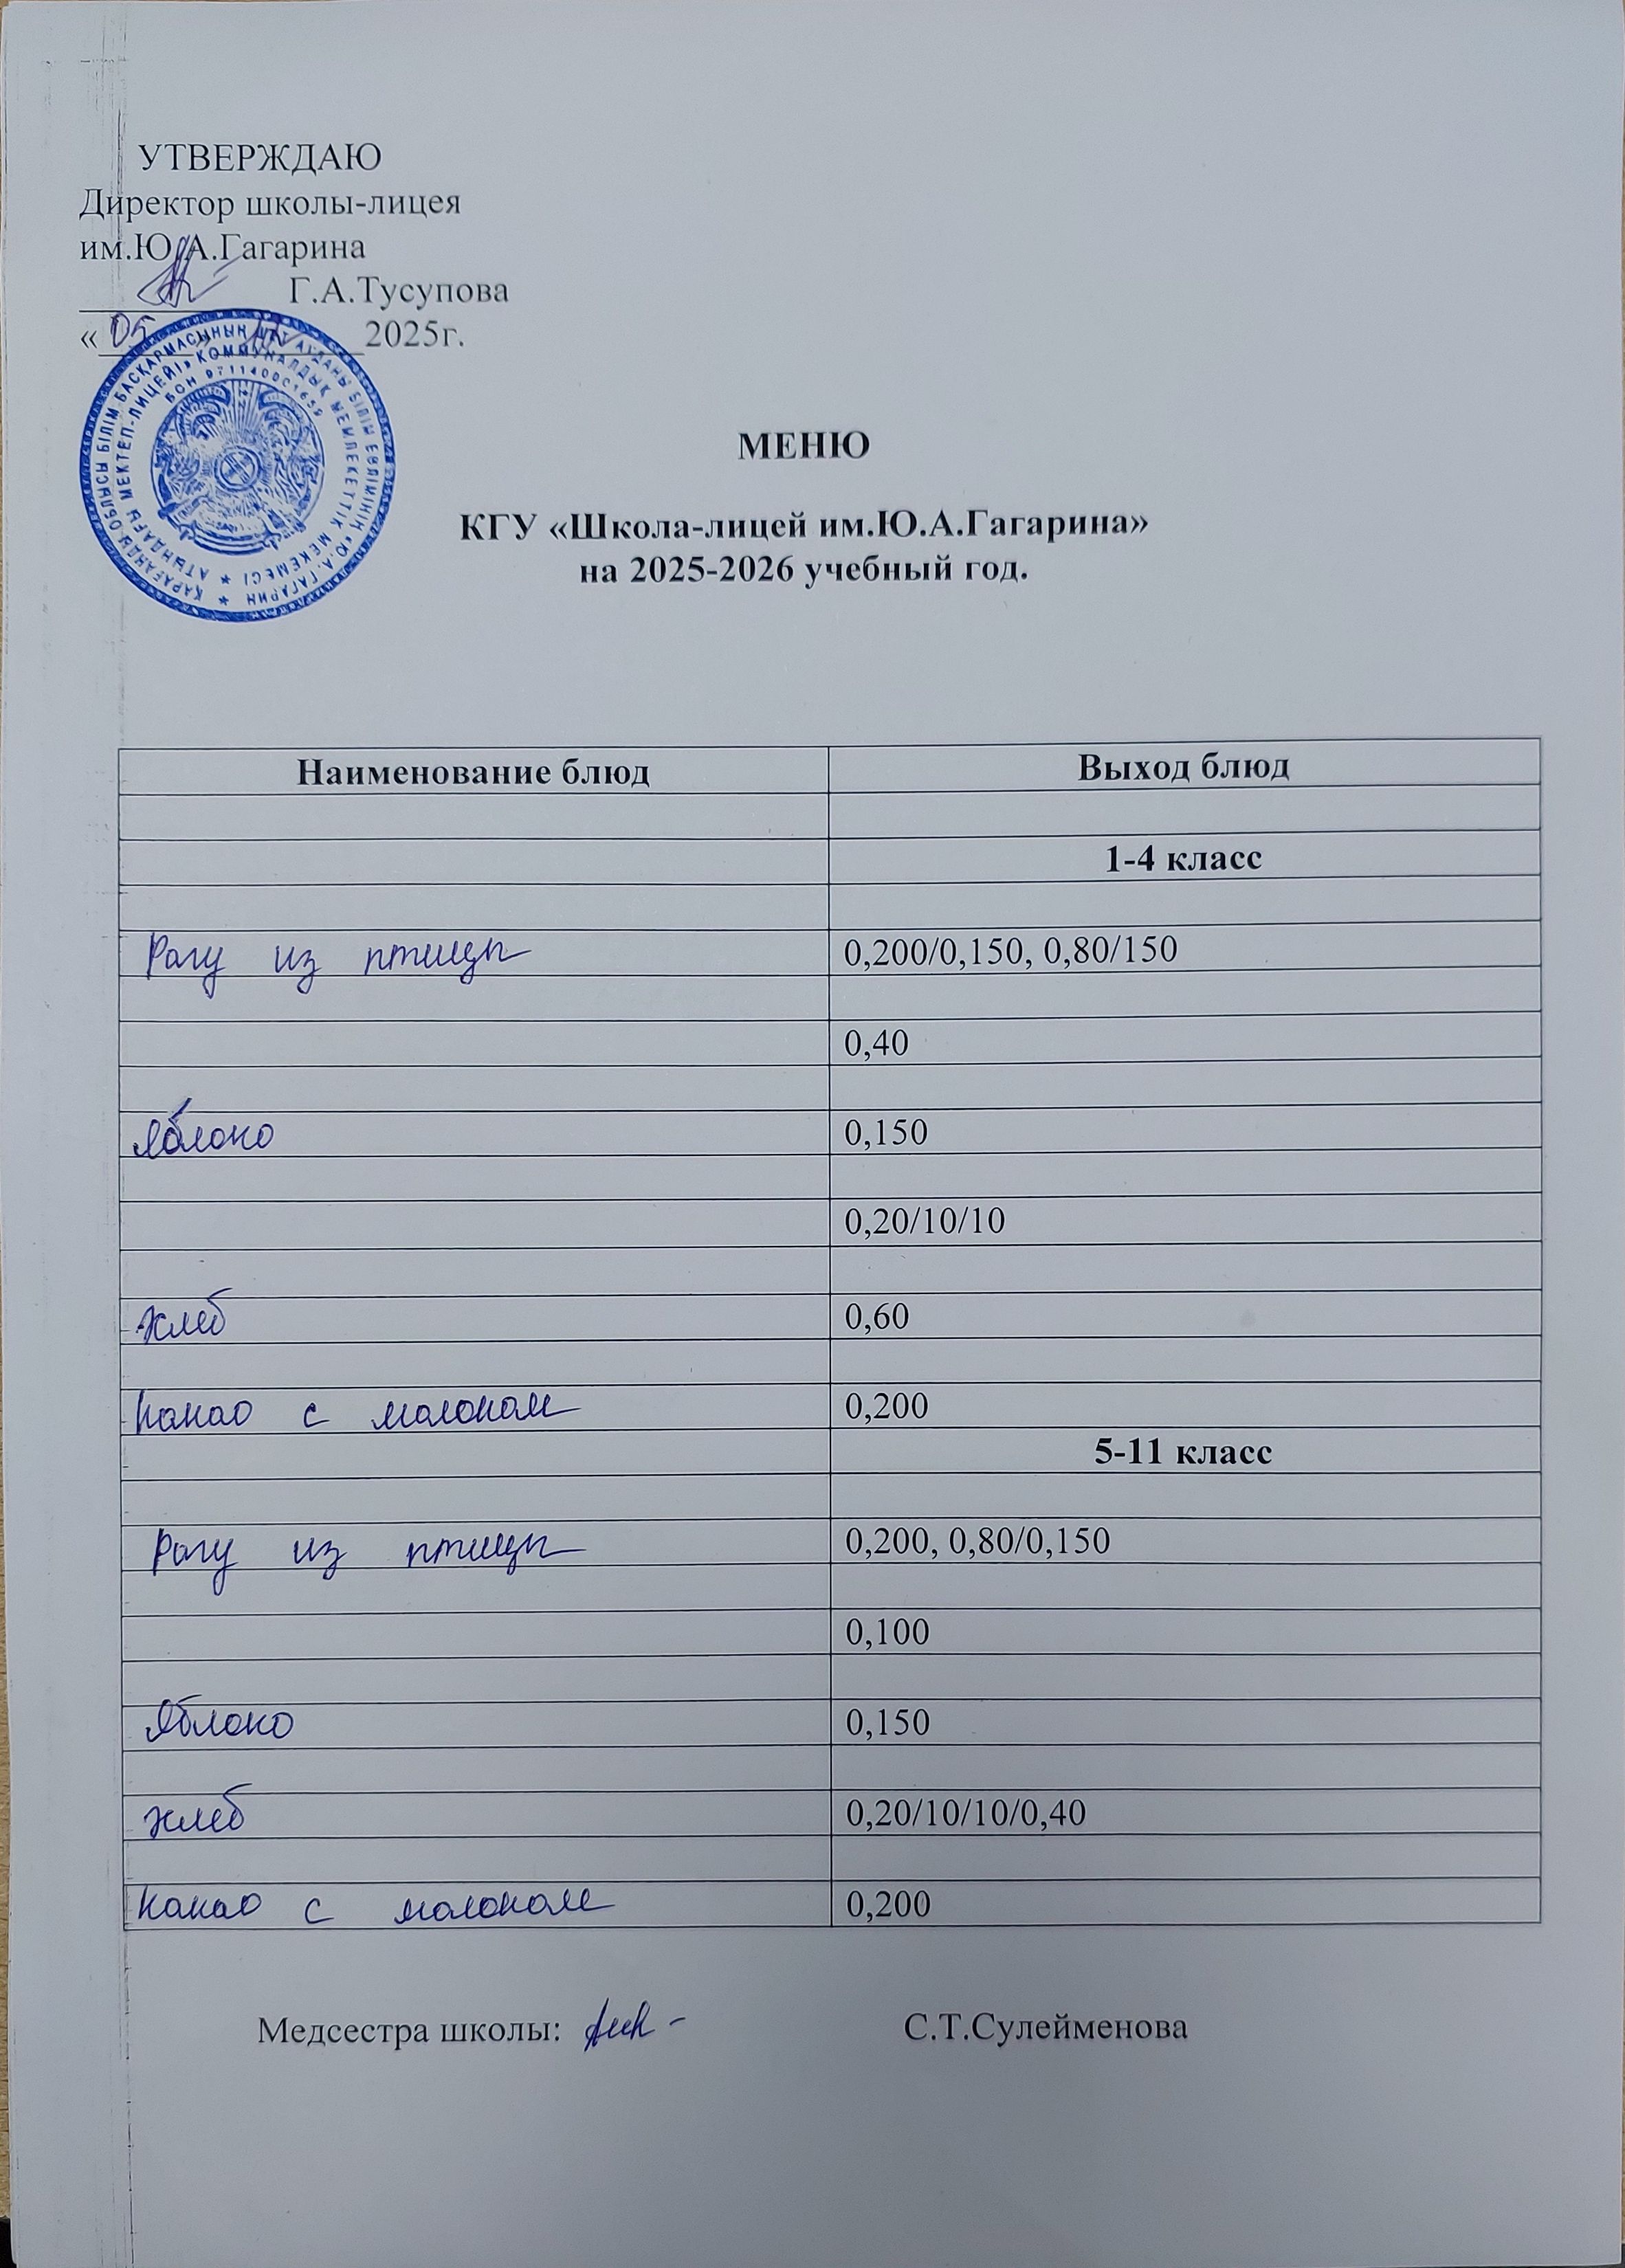 УТВЕРЖДАЮ
Директор школы-лицея
им.Ю.А.Гагарина
Г.А.Тусупова
«05» 12 2025г.
ҚАРАҒАНДЫ ОБЛЫСЫ БІЛІМ БАСҚАРМАСЫНЫҢ ШЕТ АУДАНЫ БІЛІМ БӨЛІМІНІҢ «Ю.А. ГАГАРИН
АТЫНДАҒЫ МЕКТЕП-ЛИЦЕЙІ» КОММУНАЛДЫҚ МЕМЛЕКЕТТІК МЕКЕМЕСІ
БСН 971140001659
МЕНЮ
КГУ «Школа-лицей им.Ю.А.Гагарина»
на 2025-2026 учебный год.
Наименование блюд Выход блюд
1-4 класс
Рагу из птицы 0,200/0,150, 0,80/150
0,40
Яблоко 0,150
0,20/10/10
Хлеб 0,60
Какао с молоком 0,200
5-11 класс
Рагу из птицы 0,200, 0,80/0,150
0,100
Яблоко 0,150
хлеб 0,20/10/10/0,40
Какао с молоком 0,200
Медсестра школы: С.Т.Сулейменова